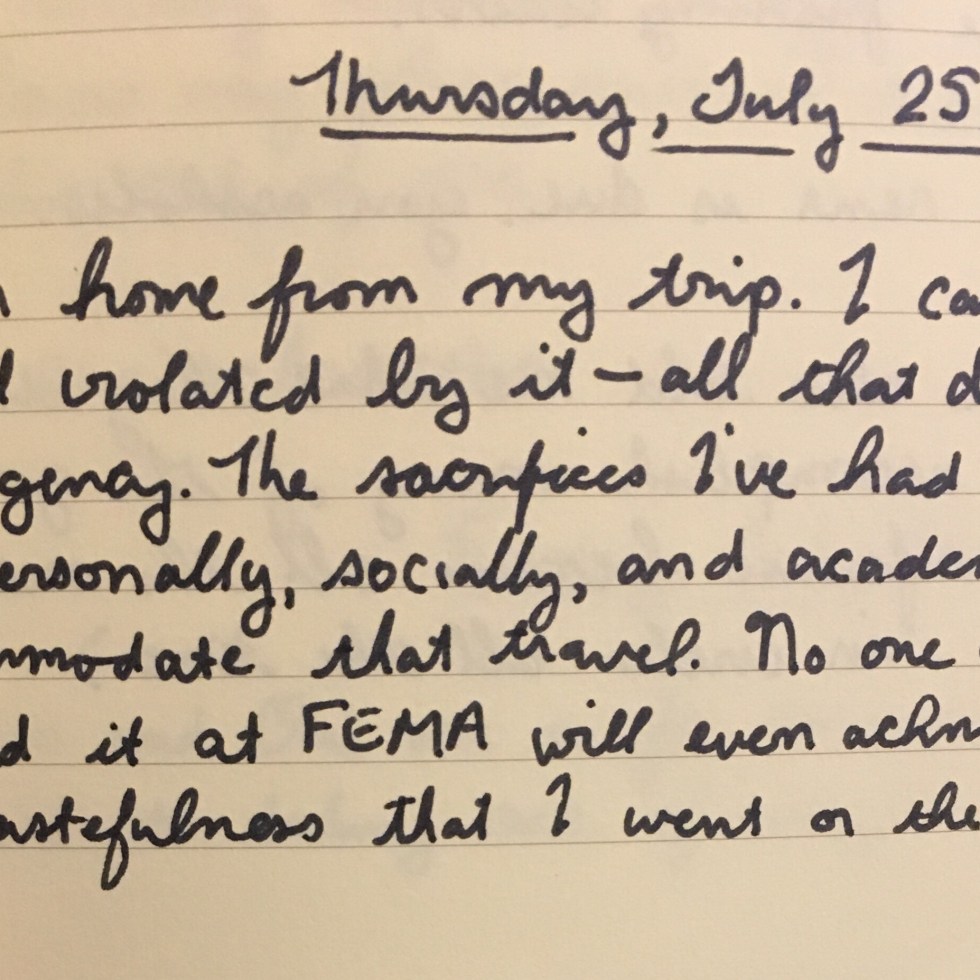 Thursday, July 25
home from my trip. I ca
violated by it – all that d
gency. The sacrifices I've had
ersonally, socially, and academ
mmodate that travel. No one
d it at FEMA will even ackn
astefulness that I went or the